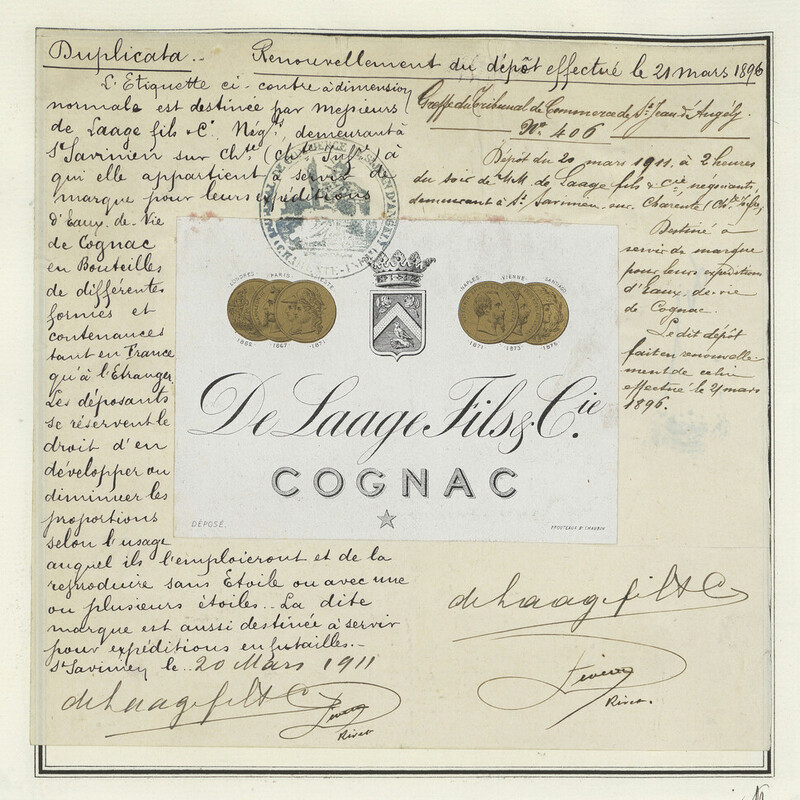 Duplicata.. Renouvellement du dépôt effectué le 21 mars 1896
L'Etiquette ci-contre à dimension
normale est destinée par Messieurs
de Laage fils & Cᵉ Négᵗˢ demeurant à
Sᵗ Savinien sur Chᵗᵉ (Chᵗᵉ Infʳᵉ) à
qui elle appartient à servir de
marque pour leurs expéditions
d'Eaux-de-Vie
de Cognac
en Bouteilles
de différentes
formes et
contenances
tant en France
qu'à l'Etranger.
Les déposants
se réservent le
droit d'en
développer ou
diminuer les
proportions
selon l'usage
auquel ils l'emploieront et de la
reproduire sans Etoile ou avec une
ou plusieurs étoiles.. La dite
marque est aussi destinée à servir
pour expéditions en futailles.-
Sᵗ Savinien le.. 20 Mars 1911
de Laage fils & C
Rivet
Greffe du Tribunal de Commerce de Sᵗ Jean d'Angély.
Nº 406
Dépôt du 20 mars 1911. à 2 heures
du soir de MM. de Laage fils & Cⁱᵉ, négociants,
demeurant à Sᵗ Savinien, sur Charente (Chᵗᵉ Infʳᵉ)
Destiné à
servir de marque
pour leurs expéditions
d'Eaux-de-vie
de Cognac.
Le dit dépôt
fait en renouvelle-
ment de celui
effectué le 21 mars
1896.
LONDRES PARIS
1865 1867 1871
NAPLES VIENNE SANTIAGO
1871 1873 1875
De Laage Fils & Cie.
COGNAC
DÉPOSÉ.
de Laage fils & C
Rivet.